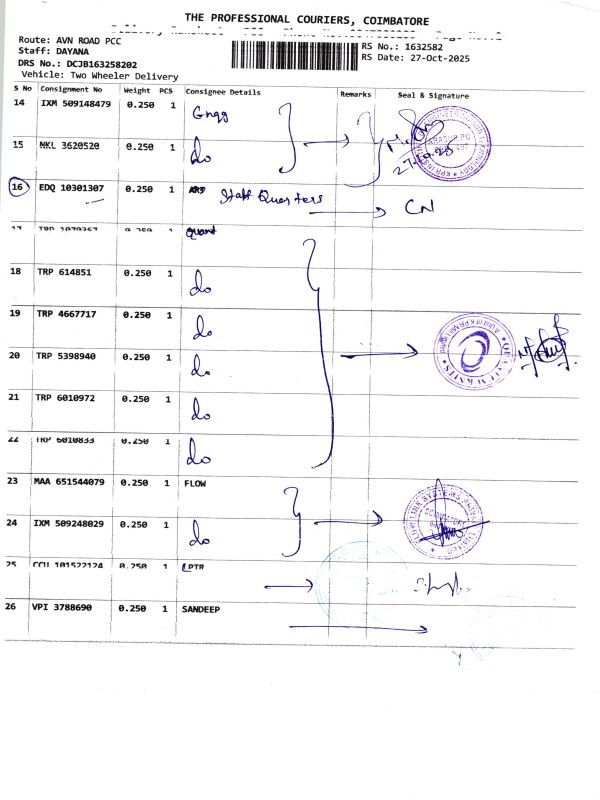 THE PROFESSIONAL COURIERS, COIMBATORE
Route: AVN ROAD PCC
Staff: DAYANA
RS No.: 1632582
RS Date: 27-Oct-2025
DRS No.: DCJB163258202
Vehicle: Two Wheeler Delivery
S No Consignment No Weight PCS Consignee Details Remarks Seal & Signature
14 IXM 509148479 0.250 1
15 NKL 3620520 0.250 1 do
16 EDQ 10301307 0.250 1 Staff Quarters CN
18 TRP 614851 0.250 1 do
19 TRP 4667717 0.250 1 do
20 TRP 5398940 0.250 1 do
21 TRP 6010972 0.250 1 do
22 TRP 6010833 0.250 1 do
23 MAA 651544079 0.250 1 FLOW
24 IXM 509248029 0.250 1 do
25 CCU 101522124 0.250 1 LPTR
26 VPI 3788690 0.250 1 SANDEEP